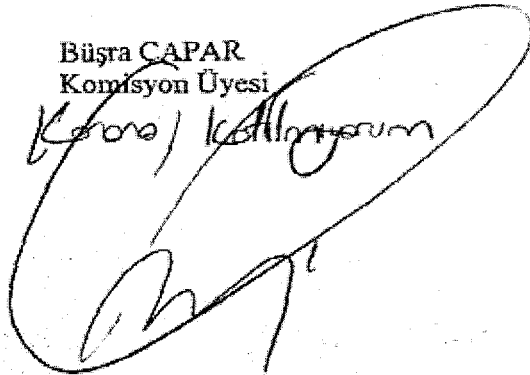 Büşra ÇAPAR
Komisyon Üyesi
Karara katılmıyorum